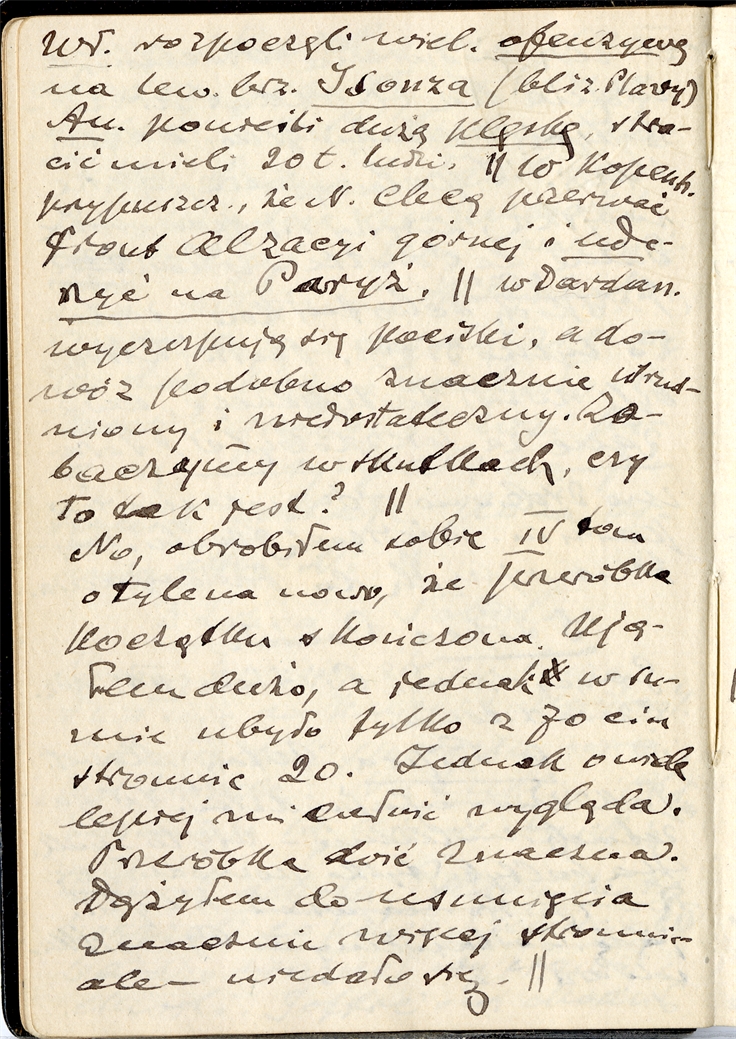 Wł. rozpoczęli wiel. ofenzywę
na lew. brz. Isonza (bliz. Plavy)
Au. ponieśli dużą klęskę, stra-
cić mieli 20 t. ludzi. || W Kopenh.
przypuszcz., że N. chcą przerwać
front Alzacyi górnej i ude-
rzyć na Paryż. || w Dardan.
wyczerpują się pociski, a do-
wóz podobno znacznie utrud-
niony i niedostateczny. Zo-
baczymy w skutkach, czy
to tak jest? ||
No, obrobiłem sobie IV tom
o tyle na nowo, że przeróbka
początku skończona. Ują-
łem dużo, a jednak w su-
mie ubyło tylko z 70 ciu
stronnic 20. Jednak o wiele
lepiej mi całość wygląda.
Przeróbka dość znaczna.
Dążyłem do usunięcia
znacznie więcej stronnic
ale – niedało się. ||